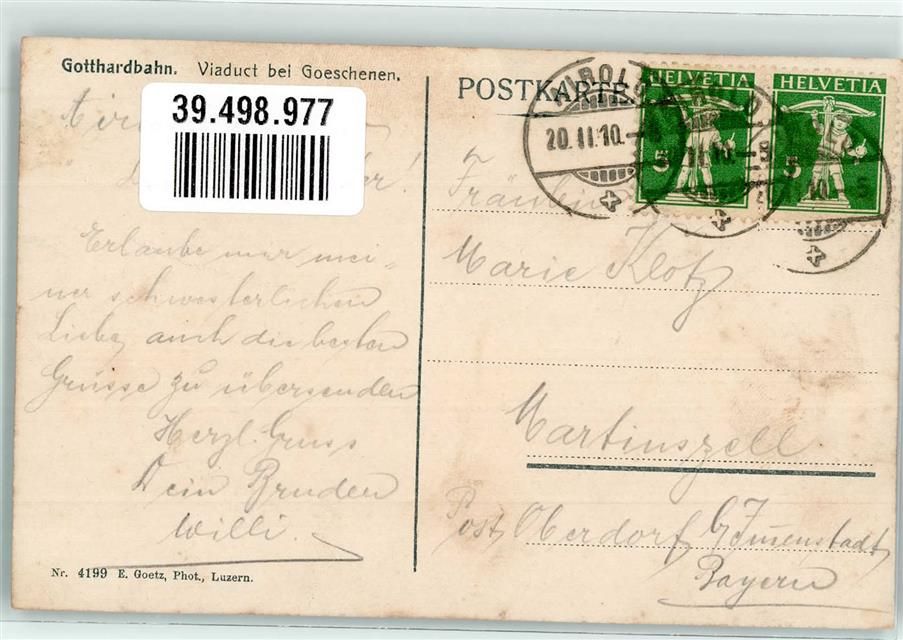 Gotthardbahn. Viaduct bei Goeschenen.
39.498.977
Erlaube mir mei-
ner schwesterlichen
Liebe, auch die besten
Grüsse zu übersenden
Herzl. Gruss
Dein Bruder
Willi.
Nr. 4199 E. Goetz, Phot., Luzern.
POSTKARTE
HELVETIA
5
HELVETIA
5
20.II.10.
Fräulein
Marie Klotz
Martinszell.
Post, Oberdorf, b/Immenstadt,
Bayern